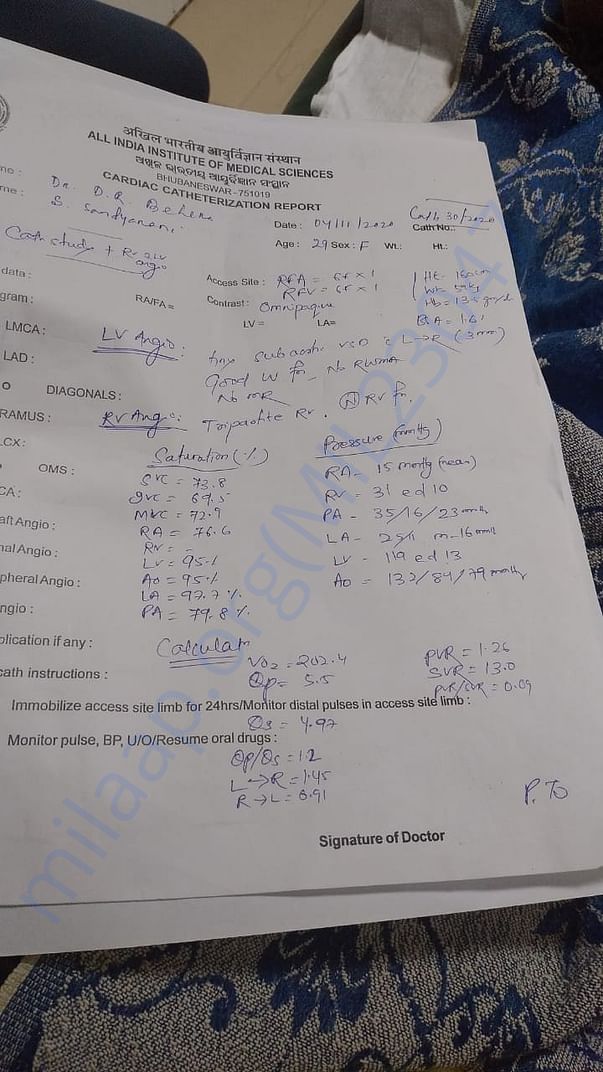 अखिल भारतीय आयुर्विज्ञान संस्थान
ALL INDIA INSTITUTE OF MEDICAL SCIENCES
BHUBANESWAR-751019
CARDIAC CATHETERIZATION REPORT
me : Dr. D.R. Behera
me : S.
Date : 04/11/2020 Cath No.: Cath 30/2020
Age : 29 Sex : F Wt.: Ht.:
Cath study + RV & LV angio
data :
Access Site : RFA = 6F x 1
RFV = 6F x 1
gram : RA/FA= Contrast : Omnipaque
LV = LA=
LMCA : LV Angio : tiny subaortic VSD L→R (3mm)
LAD : Good LV fn. No RWMA
No MR
DIAGONALS :
RAMUS : RV Angio : Tripartite RV. (N) RV fn.
CX :
Saturation (%) Pressure (mmHg)
OMS : SVC = 73.8 RA - 15 mmHg (mean)
IVC = 69.5 RV - 31 ed 10
CA : MVC = 72.9 PA - 35/16/23 mmHg
RA = 76.6
aft Angio : RV = - LA - m-16 mmHg
LV = 95.1 LV - 119 ed 13
nal Angio : Ao = 95.1 Ao = 132/84/79 mmHg
pheral Angio : LA = 97.7 %
ngio : PA = 79.8 %
plication if any : Calculat
VO2 = 202.4 PVR = 1.26
cath instructions : Qp = 5.5 SVR = 13.0
PVR/SVR = 0.09
Immobilize access site limb for 24hrs/Monitor distal pulses in access site limb :
Qs = 4.97
Monitor pulse, BP, U/O/Resume oral drugs :
Qp/Qs = 1.2
L→R = 1.45
R→L = 0.91
P.TO
Signature of Doctor
milaap.org